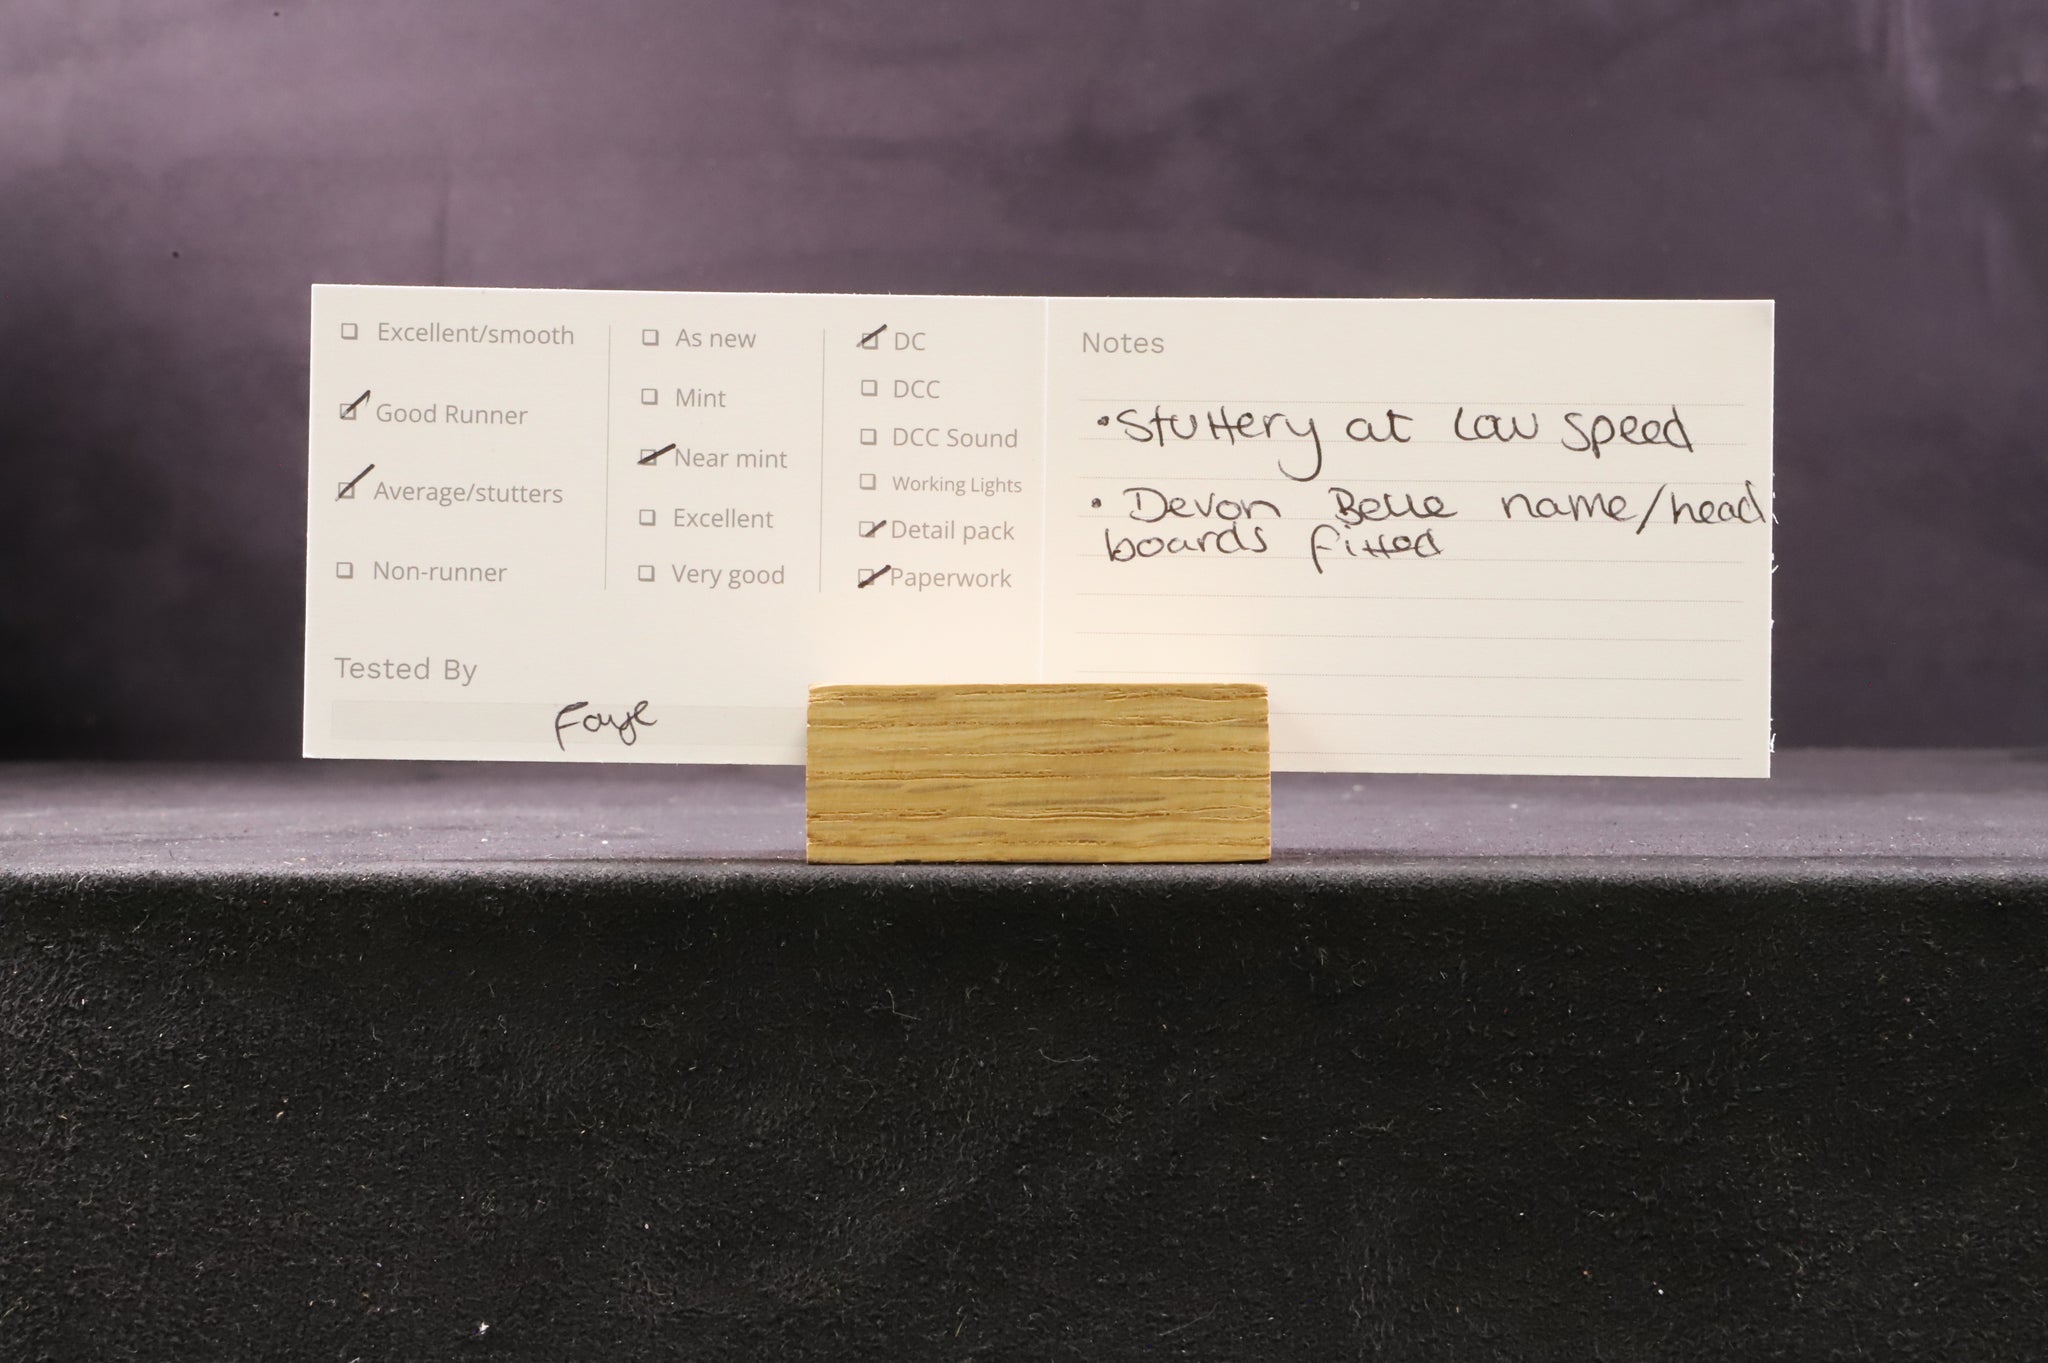 Excellent/smooth
Good Runner
Average/stutters
Non-runner
As new
Mint
Near mint
Excellent
Very good
DC
DCC
DCC Sound
Working Lights
Detail pack
Paperwork
Tested By
Faye
Notes
• Stuttery at low speed
• Devon Belle name/head
boards fitted